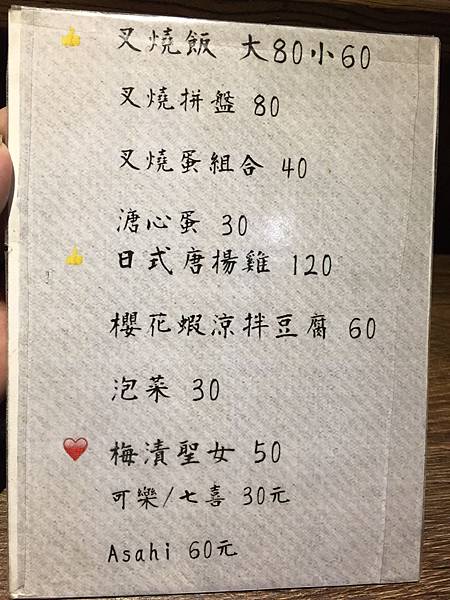 叉燒飯 大80小60
叉燒拼盤 80
叉燒蛋組合 40
溏心蛋 30
日式唐揚雞 120
櫻花蝦涼拌豆腐 60
泡菜 30
梅漬聖女 50
可樂/七喜 30元
Asahi 60元